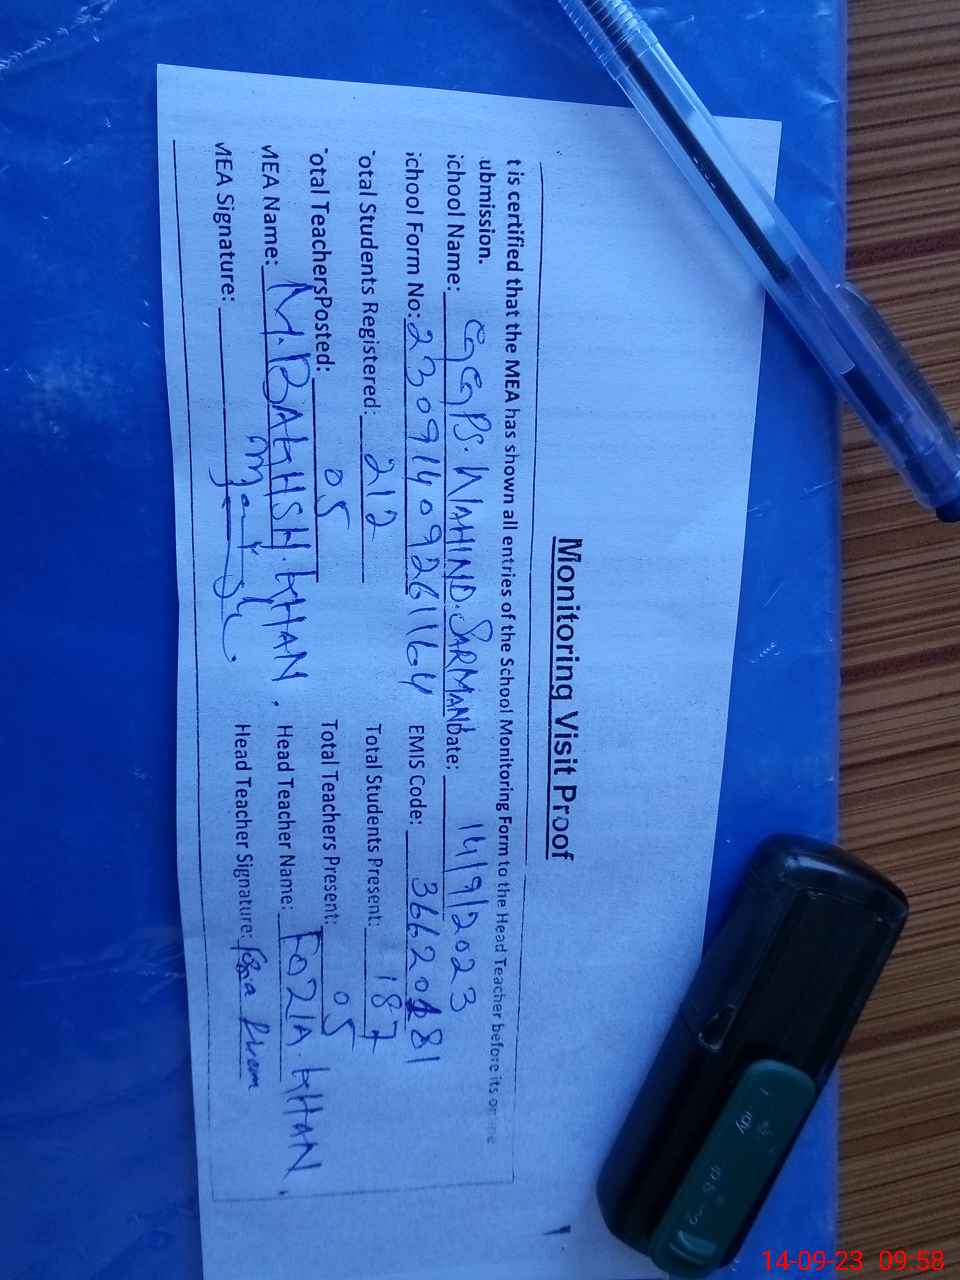 Monitoring Visit Proof
t is certified that the MEA has shown all entries of the School Monitoring Form to the Head Teacher before its online
ubmission.
ichool Name: GGPS. WAHIND. SARMANI Date: 14/9/2023
ichool Form No: 23091409261164 EMIS Code: 36620181
otal Students Registered: 212 Total Students Present: 187
otal TeachersPosted: 05 Total Teachers Present: 05
MEA Name: M. BAKHSH. KHAN. Head Teacher Name: FOZIA. KHAN.
MEA Signature: Head Teacher Signature:
14-09-23 09:58